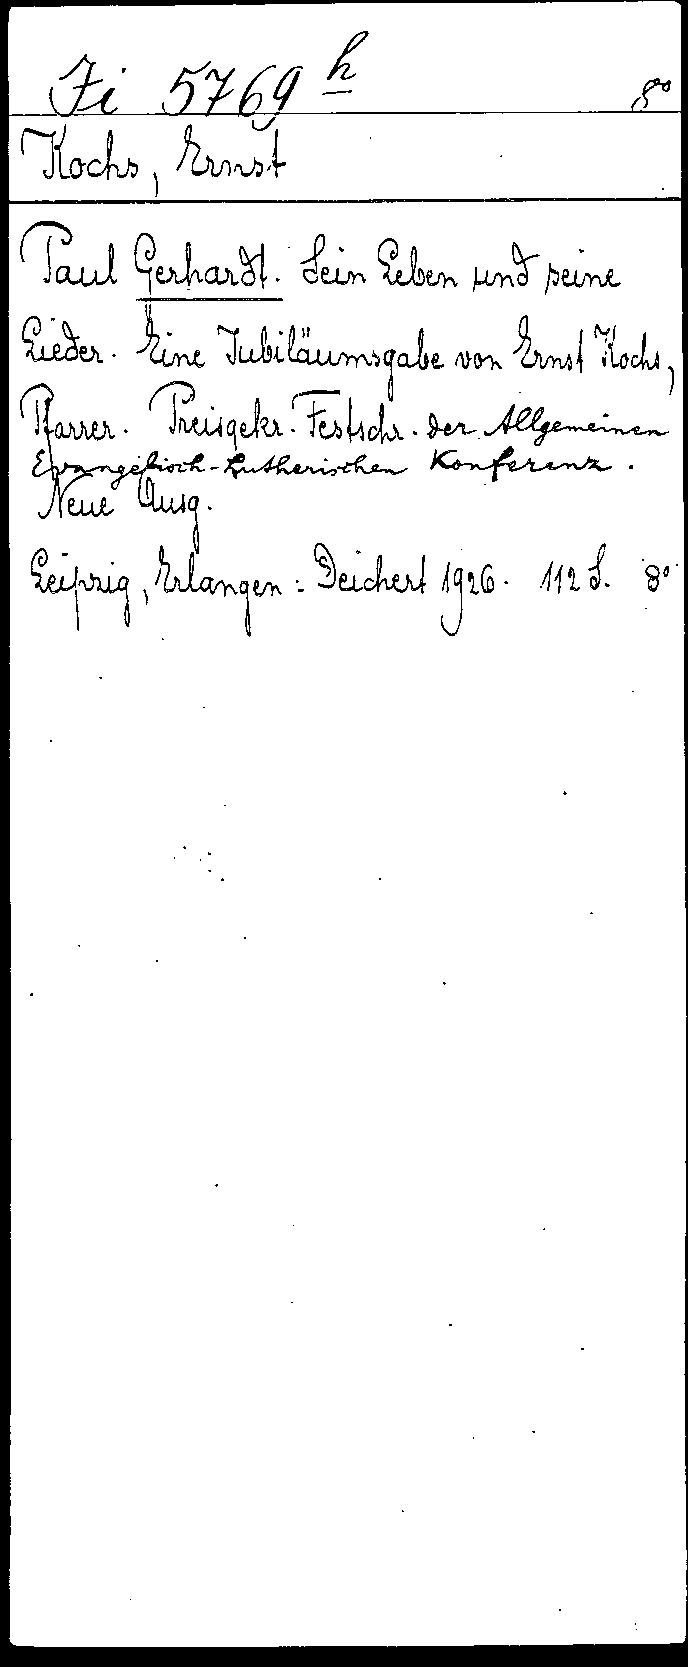 Fi 5769 h 8°
Kochs, Ernst
Paul Gerhardt. Sein Leben und seine
Lieder. Eine Jubiläumsgabe von Ernst Kochs,
Pfarrer. Preisgekr. Festschr. der Allgemeinen
Evangelisch-Lutherischen Konferenz.
Neue Ausg.
Leipzig, Erlangen: Deichert 1926. 112 S. 8°